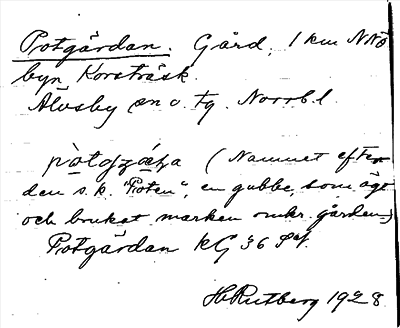 Potgärdan. Gård, 1 km NNO
byn Korsträsk.
Älvsby sn o. tg. Norrb. l
(Namnet efter
den s.k. "Poten", en gubbe, som ägt
och brukat marken omkr. gården.)
Potgärdan kG 36 Päl.
H. Rutberg 1928